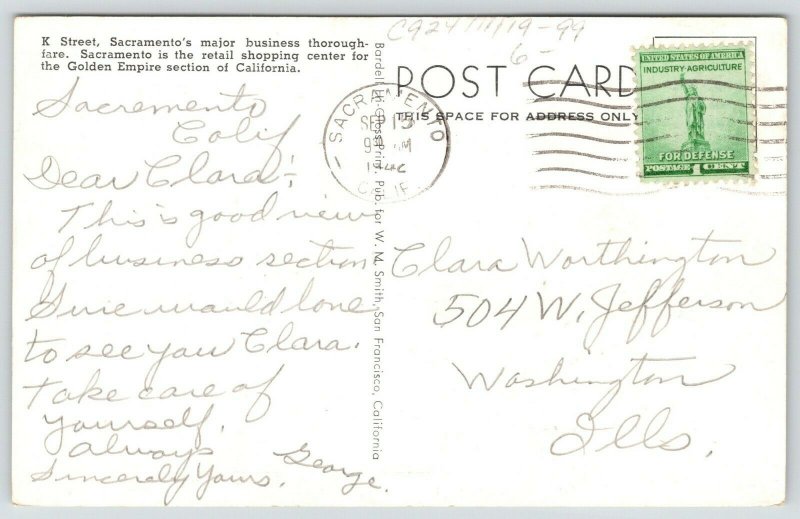 K Street, Sacramento's major business thorough-
fare. Sacramento is the retail shopping center for
the Golden Empire section of California.
Sacramento
Calif
Dear Clara:
This is good view
of business section
Sure would love
to see you Clara.
Take care of
yourself,
always
Sincerely Yours,
George.
Bardell Hi-Gloss Print, Pub. for W. M. Smith, San Francisco, California
C924 11/19-99
6-
POST CARD
THIS SPACE FOR ADDRESS ONLY
SACRAMENTO
SEP 13
CALIF
UNITED STATES OF AMERICA
INDUSTRY-AGRICULTURE
FOR DEFENSE
POSTAGE 1 CENT
Clara Worthington
504 W. Jefferson
Washington
Ills.